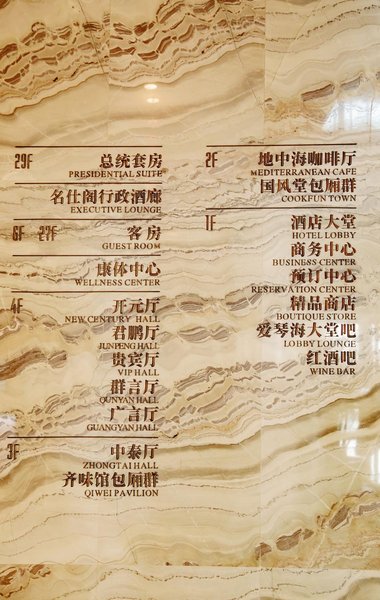 29F 总统套房
PRESIDENTIAL SUITE
名仕阁行政酒廊
EXECUTIVE LOUNGE
6F 27F 客房
GUEST ROOM
康体中心
WELLNESS CENTER
4F 开元厅
NEW CENTURY HALL
君鹏厅
JUNPENG HALL
贵宾厅
VIP HALL
群言厅
QUNYAN HALL
广言厅
GUANGYAN HALL
3F 中泰厅
ZHONGTAI HALL
齐味馆包厢群
QIWEI PAVILION
2F 地中海咖啡厅
MEDITERRANEAN CAFE
国风堂包厢群
COOKFUN TOWN
1F 酒店大堂
HOTEL LOBBY
商务中心
BUSINESS CENTER
预订中心
RESERVATION CENTER
精品商店
BOUTIQUE STORE
爱琴海大堂吧
LOBBY LOUNGE
红酒吧
WINE BAR